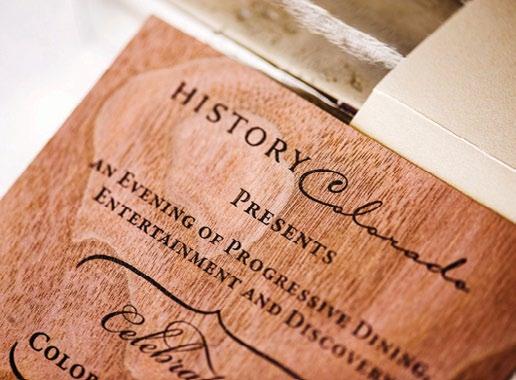 HISTORY Colorado
PRESENTS
AN EVENING OF PROGRESSIVE DINING,
ENTERTAINMENT AND DISCOVER
Celebrat
COLOR